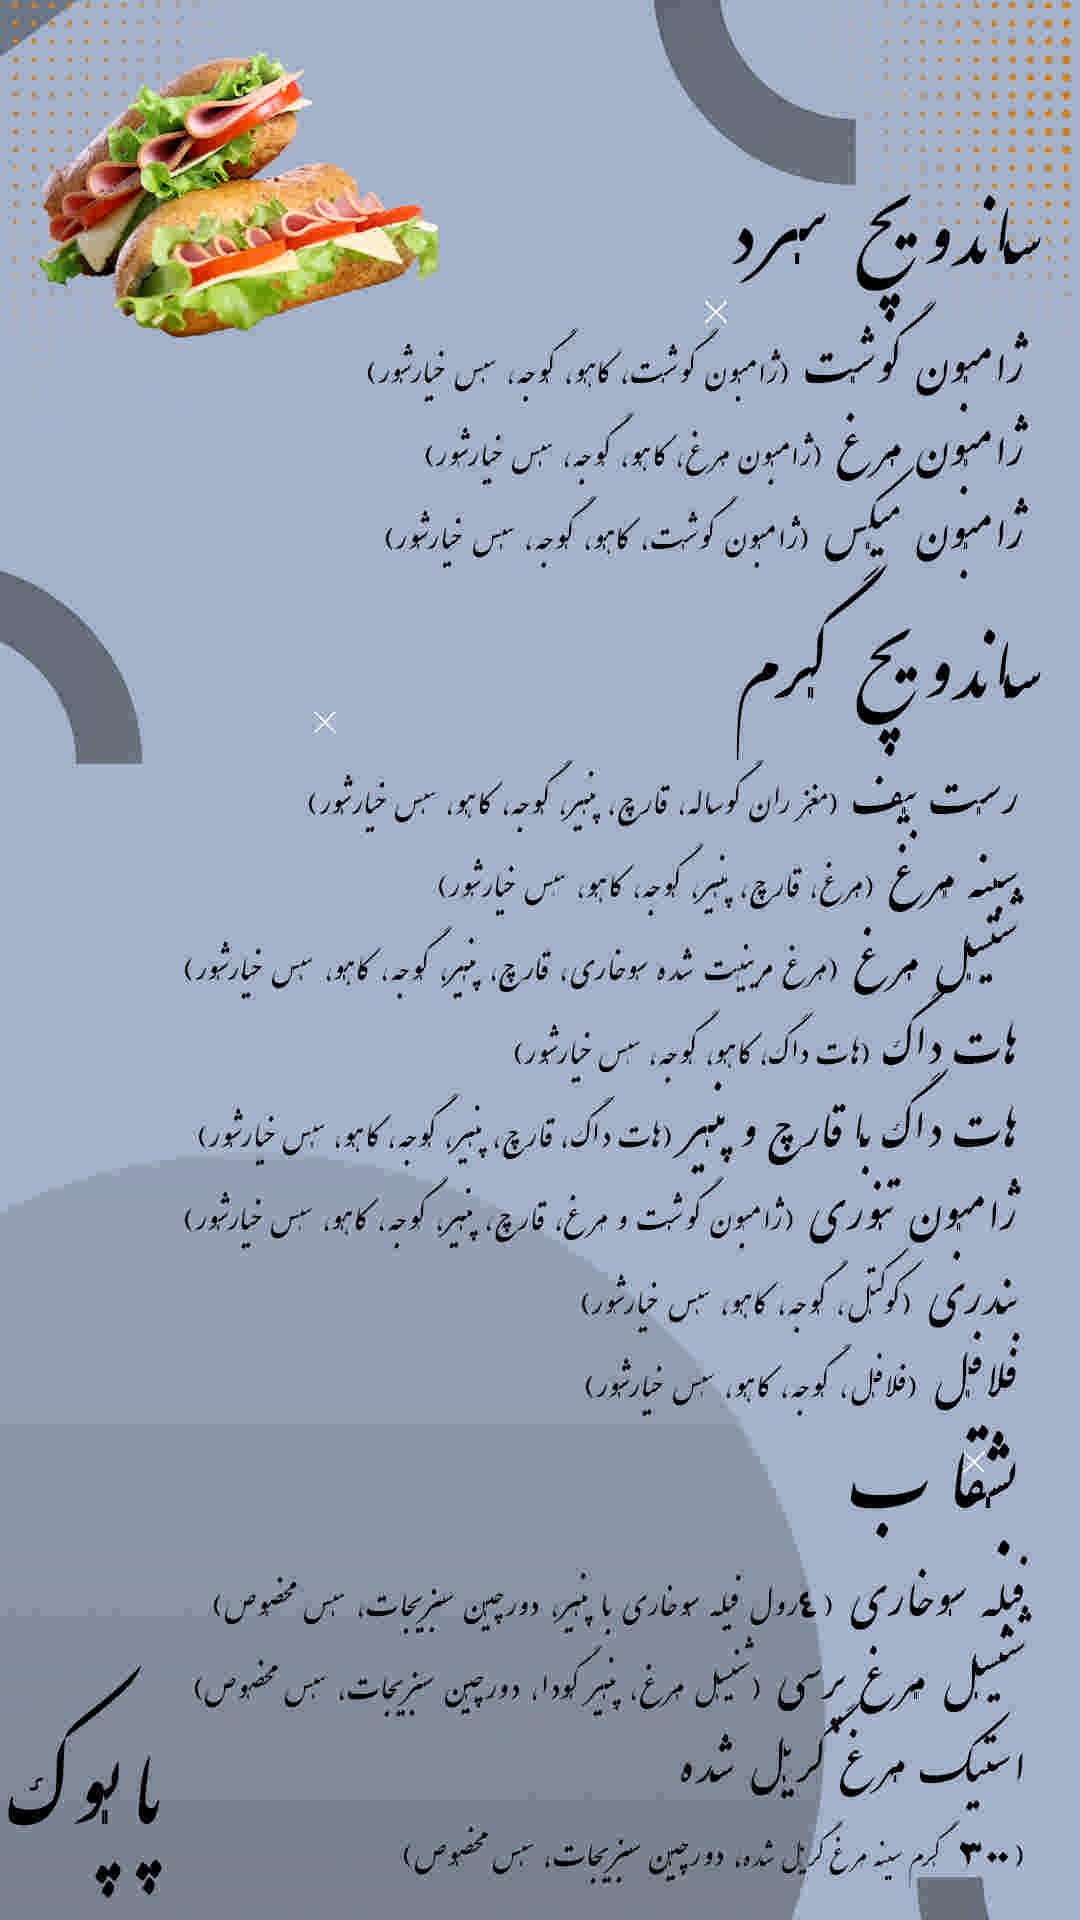 ساندویچ سرد
ژامبون گوشت (ژامبون گوشت، کاهو، گوجه، سس خیارشور)
ژامبون مرغ (ژامبون مرغ، کاهو، گوجه، سس خیارشور)
ژامبون میکس (ژامبون گوشت، کاهو، گوجه، سس خیارشور)
ساندویچ گرم
رست بیف (مغز ران گوساله، قارچ، پنیر، گوجه، کاهو، سس خیارشور)
سینه مرغ (مرغ، قارچ، پنیر، گوجه، کاهو، سس خیارشور)
شنیسل مرغ (مرغ مرینیت شده سوخاری، قارچ، پنیر، گوجه، کاهو، سس خیارشور)
هات داگ (هات داگ، کاهو، گوجه، سس خیارشور)
هات داگ با قارچ و پنیر (هات داگ، قارچ، پنیر، گوجه، کاهو، سس خیارشور)
ژامبون تنوری (ژامبون گوشت و مرغ، قارچ، پنیر، گوجه، کاهو، سس خیارشور)
بندری (کوکتل، گوجه، کاهو، سس خیارشور)
فلافل (فلافل، گوجه، کاهو، سس خیارشور)
بشقاب
فیله سوخاری (٤رول فیله سوخاری با پنیر، دورچین سبزیجات، سس مخصوص)
شنیسل مرغ پرسی (شنیسل مرغ، پنیر گودا، دورچین سبزیجات، سس مخصوص)
استیک مرغ گریل شده
(۳۰۰ گرم سینه مرغ گریل شده، دورچین سبزیجات، سس مخصوص)
پاپوک